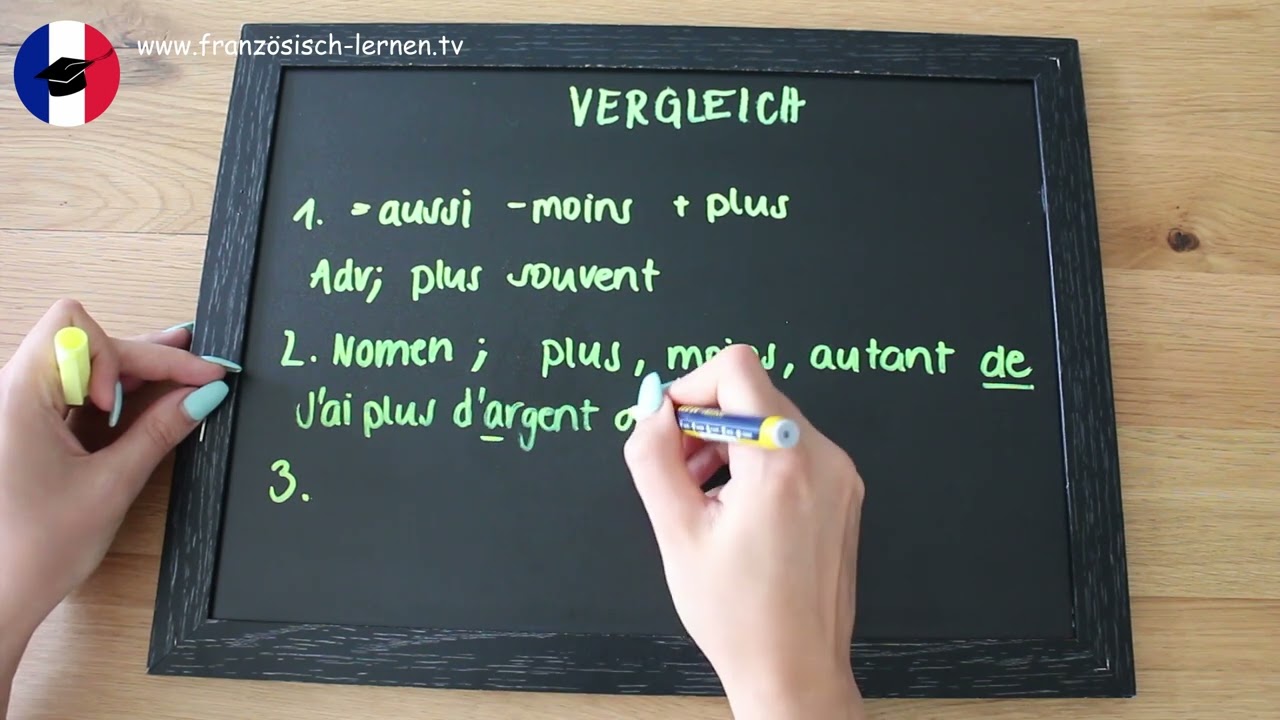 www.französisch-lernen.tv
VERGLEICH
1. = aussi - moins + plus
Adv; plus souvent
2. Nomen ; plus, moins, autant de
J'ai plus d'argent
3.